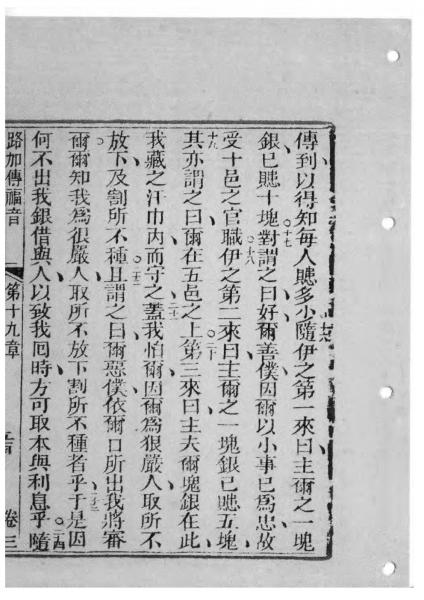 傳到以得知每人賺多少隨伊之第一來曰主爾之一塊
十六
銀已賺十塊對謂之曰好爾善僕因爾以小事已爲忠故
十七
受十邑之官職伊之第二來曰主爾之一塊銀已賺五塊
十八
其亦謂之曰爾在五邑之上第三來曰主夫爾塊銀在此
十九
二十
我藏之汗巾內而守之蓋我怕爾因爾爲狠嚴人取所不
二十一
放下及割所不種且謂之曰爾惡僕依爾口所出我將審
二十二
爾爾知我爲很嚴人取所不放下割所不種者乎于是因
二十三
何不出我銀借與人以致我囘時方可取本與利息乎隨
二十四
路加傳福音
第十九章
卷三